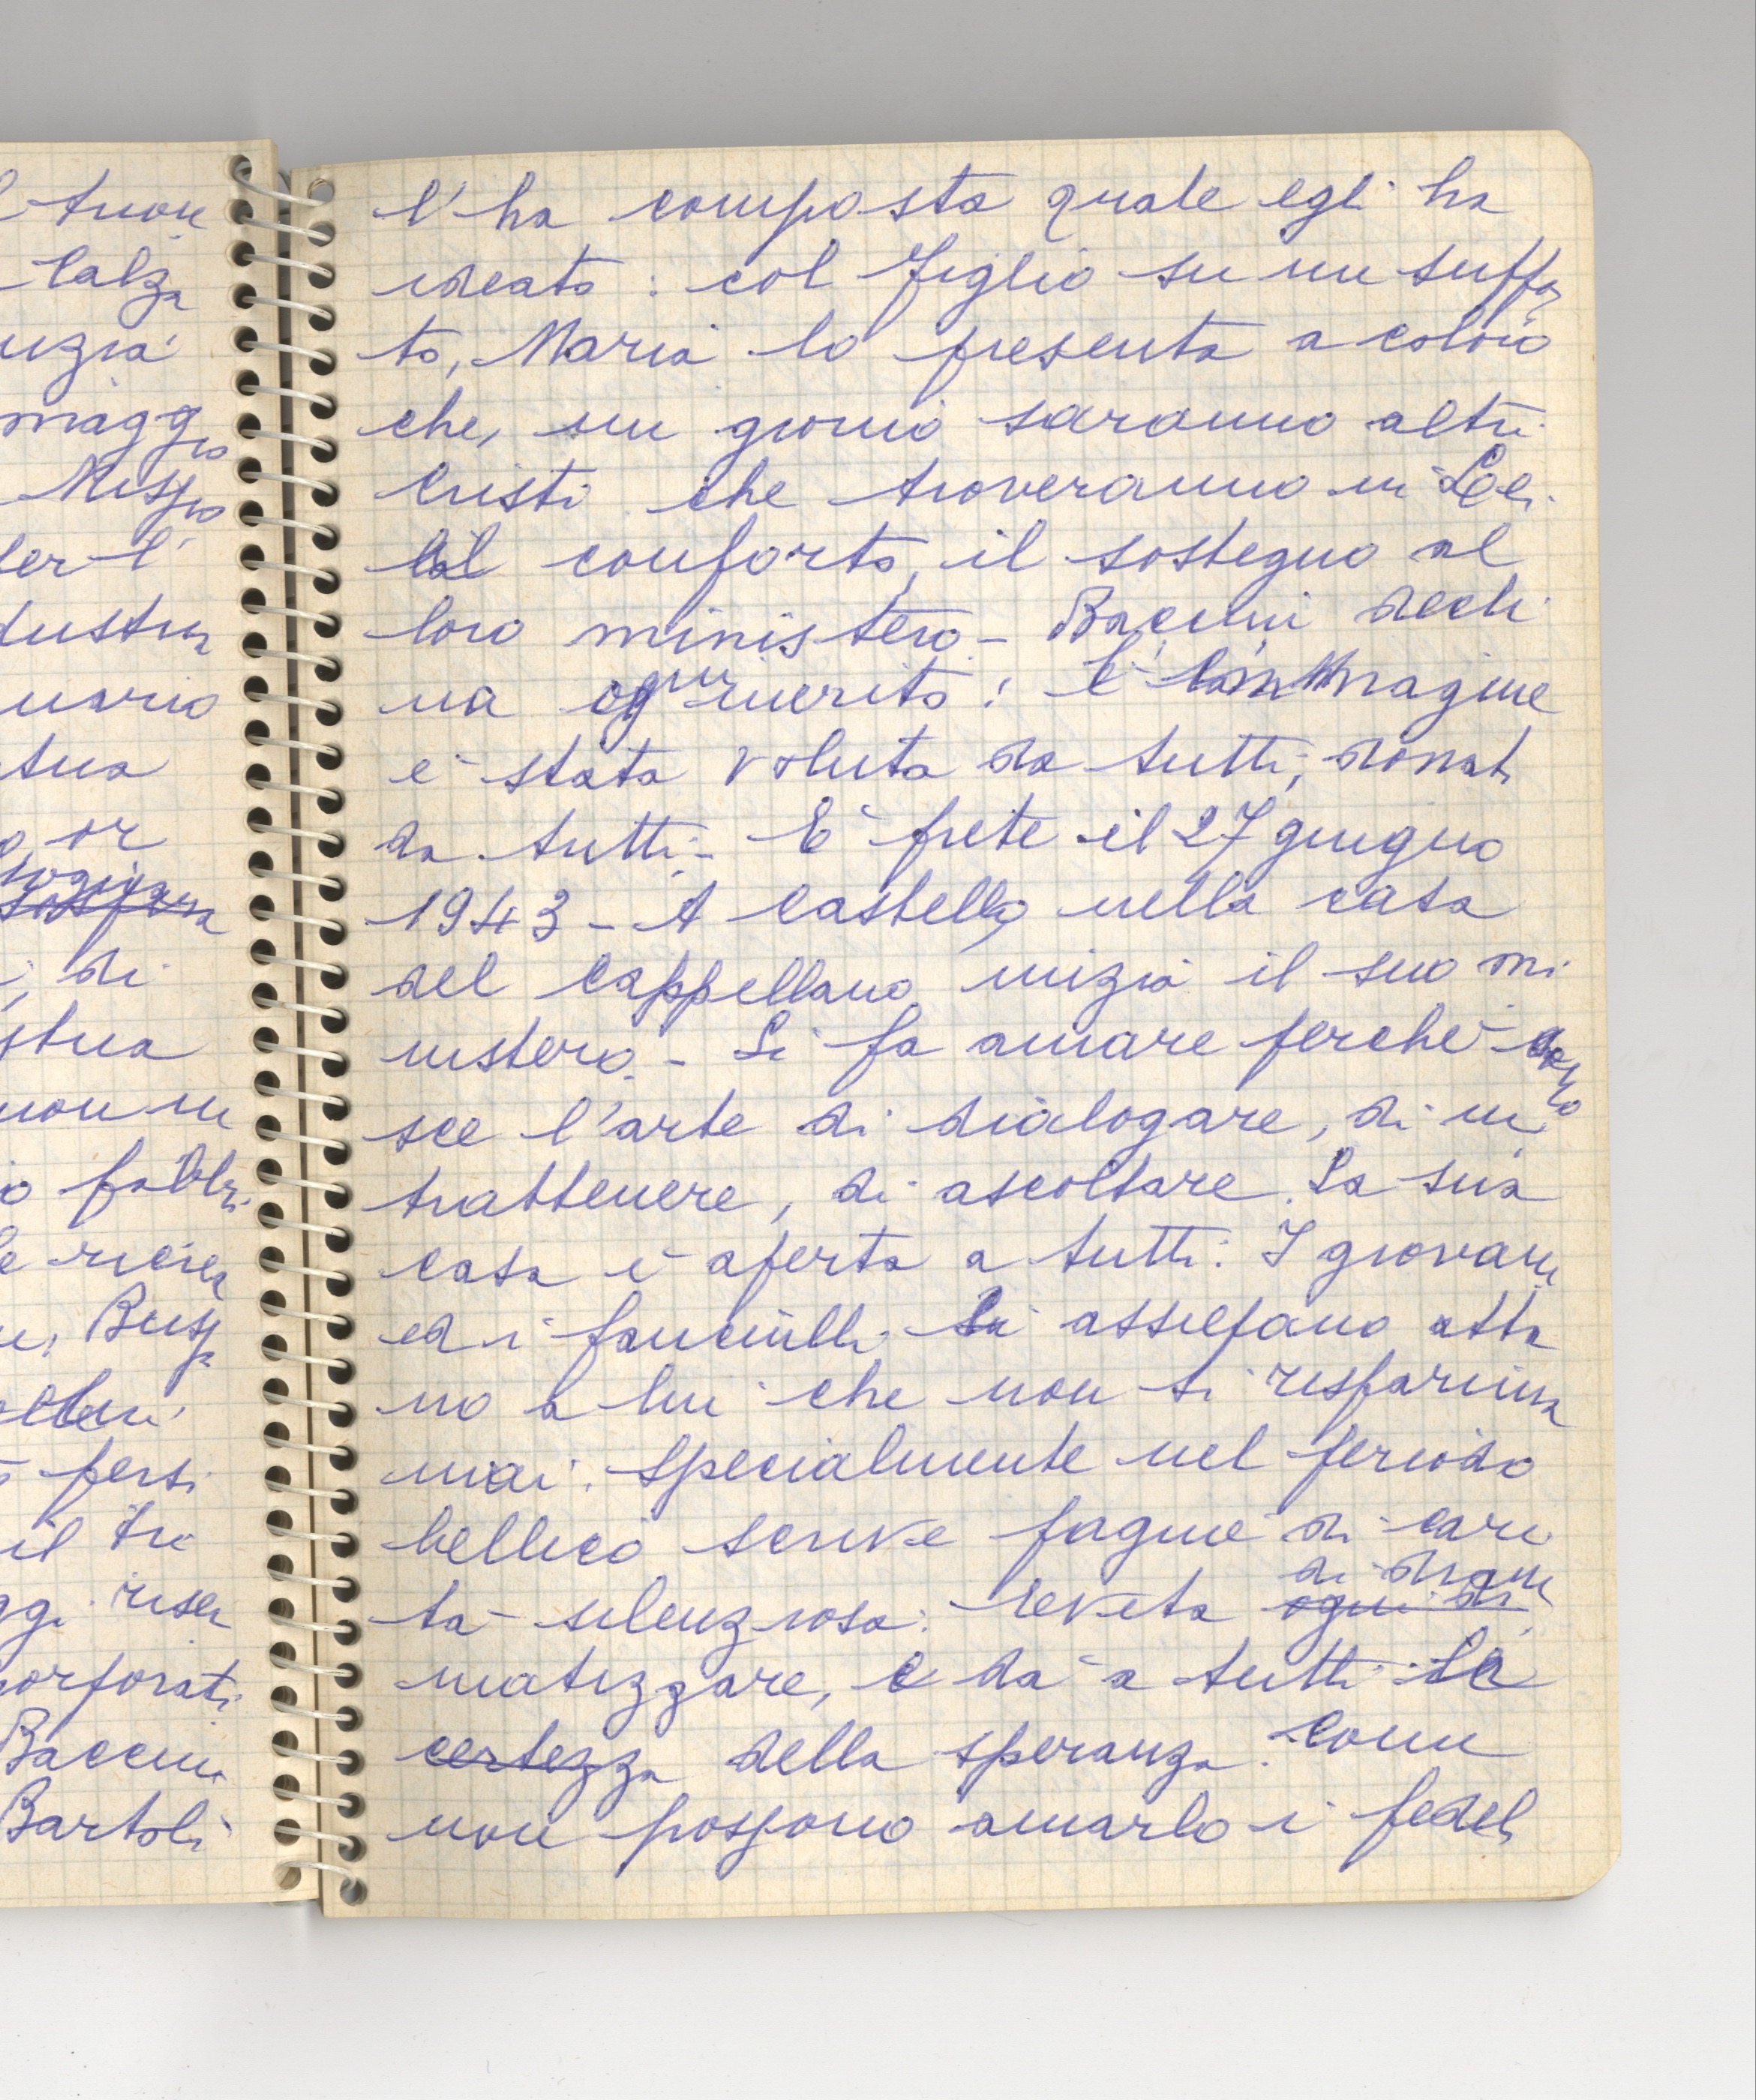 l tuon
Calza
nizia
maggio
Mispo
per l'
dustria
nario
tua
o or
, di
stua
non in
o fabbri
le ricrea
Busp
- persi
il tre
ggi risen
corporati
Baccini
Bartoli
l'ha composta quale egli ha
ideato: col Figlio su un suppa
to, Maria lo presenta a coloro
che, un giorno saranno altri
Cristi che troveranno in Lei
il conforto, il sostegno al
loro ministero - Baccini decli
na ogni merito: l'immagine
è stata voluta da tutti, donata
da tutti - E' prete il 27 giugno
1943 - A Castello, nella casa
del Cappellano inizia il suo mi
nistero. - Si fa amare perchè cono
sce l'arte di dialogare, di in
trattenere, di ascoltare. La sua
casa è aperta a tutti: I giovani
ed i fanciulli si assiepano atto
no a lui che non si risparmia
mai. Specialmente nel periodo
bellico scrive pagine di cari
tà silenziosa: evita ogni di di dram
matizzare, e dà a tutti la
certezza della speranza. Come
non possono amarlo i fedeli